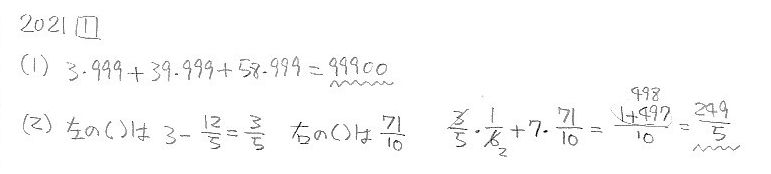 2021 1
(1) 3・999+39・999+58・999=99900
(2) 左の()は 3-12/5=3/5 右の()は 71/10 3/5・1/6 2+7・71/10=498 1+497/10=249/5